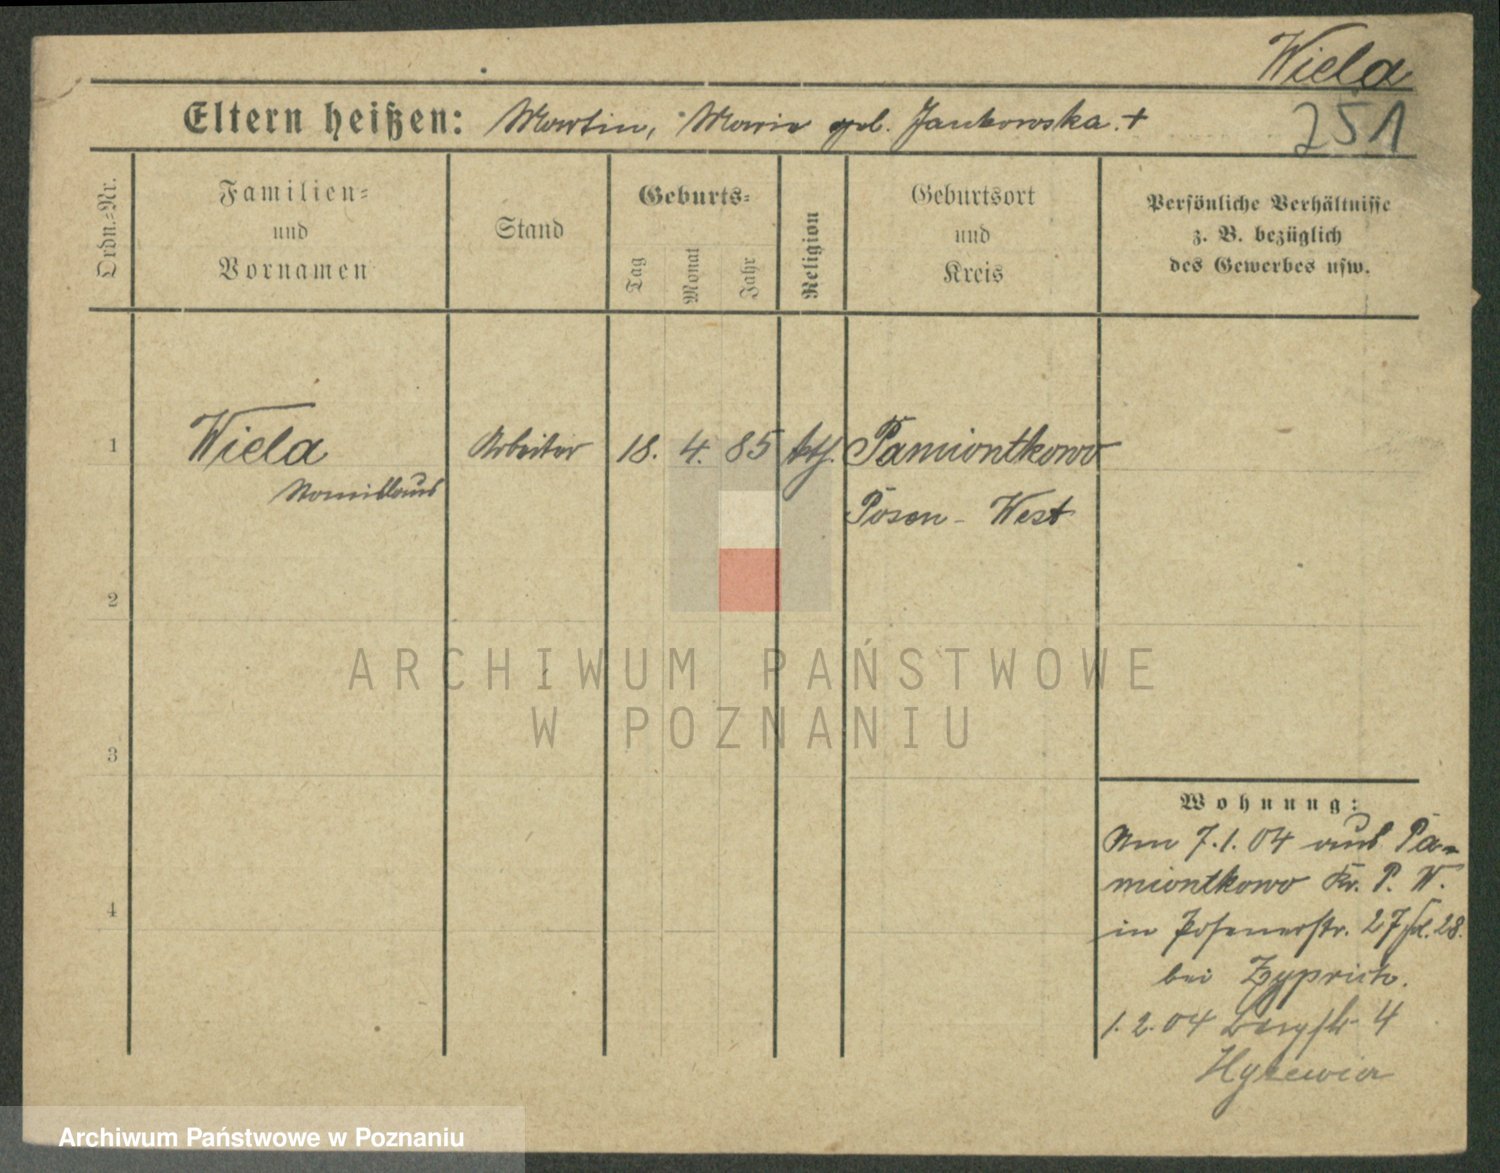 Wiela
251
Eltern heißen: Martin, Marie geb. Jankowska. +
Ordn.=Nr.
Familien=
und
Vornamen
Stand
Geburts=
Tag
Monat
Jahr
Religion
Geburtsort
und
Kreis
Persönliche Verhältnisse
z. B. bezüglich
des Gewerbes usw.
1 Wiela Arbeiter 18. 4. 85 kth. Pamiontkowo
Posen - West
2
3
4
Wohnung:
Am 7.1.04 aus Pa-
miontkowo Kr. P. W.
in Posenerstr. 27 28.
bei
1.2.04 Bergstr 4
ARCHIWUM PAŃSTWOWE
W POZNANIU
Archiwum Państwowe w Poznaniu